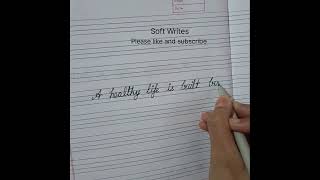 Soft Writes
Please like and subscribe
A healthy life is built